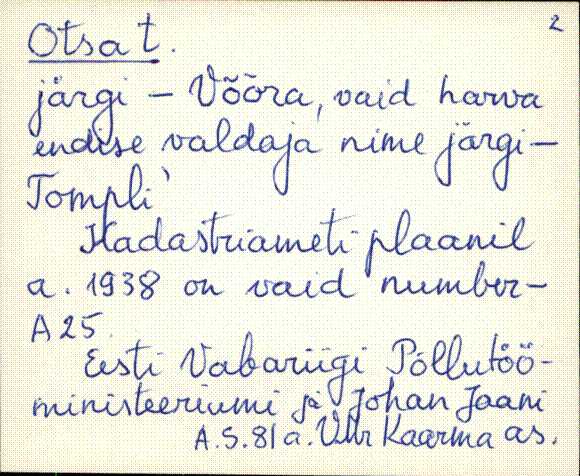 2
Otsa t.
järgi – Võõra, vaid harva
endise valdaja nime järgi –
Tompli`
Kadastriameti plaanil
a. 1938 on vaid number –
A 25.
Eesti Vabariigi Põllutöö-
ministeeriumi ja Johan Jaani
A.S. 81 a. Kaarma as.